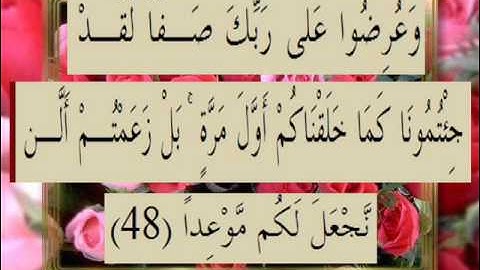 وَعُرِضُوا عَلَى رَبِّكَ صَـفًّا لَقَدْ
جِئْتُمُونَا كَمَا خَلَقْنَاكُمْ أَوَّلَ مَرَّةٍ ۚ بَلْ زَعَمْتُـــمْ أَلَّـــن
نَّجْعَلَ لَكُم مَّوْعِدًا (48)